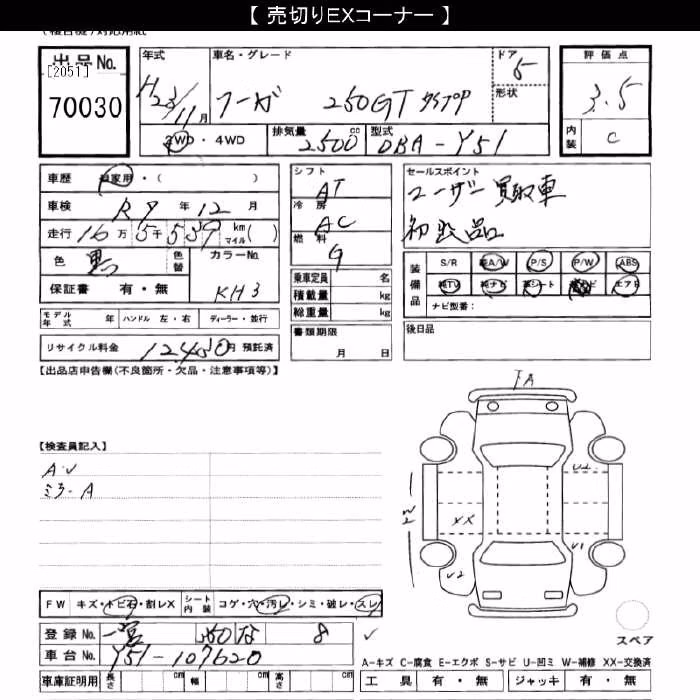 【 売切りEXコーナー 】
出品No.
[2051]
70030
年式
H23/11月
車名・グレード
フーガ 250GT タイプP
ドア
5
形状
評価点
3.5
内装
C
2WD・4WD
排気量
2500cc
型式
DBA-Y51
車歴 自家用・( )
車検 R7年12月
走行 16万5千539 km マイル( )
色 黒 色替
カラーNo.
KH3
保証書 有・無
モデル年式 年 ハンドル 左・右 ディーラー・並行
リサイクル料金 12,430円 預託済
シフト
AT
冷房
AC
燃料
G
乗車定員 名
積載量 kg
総重量 kg
書類期限
月 日
セールスポイント
ユーザー買取車
初出品
装備品
S/R 純A/W P/S P/W ABS
純TV 純ナビ 革シート エアB
ナビ型番:
後日品
【出品店申告欄(不良箇所・欠品・注意事項等)】
【検査員記入】
A・U
ミラーA
FW キズ・トビ石・割レX シート内装 コゲ・穴・汚レ・シミ・破レ・スレ
登録No. 一宮 な 8
車台No. Y51-107620
車庫証明用 長さ cm 幅 cm 高さ cm
FA
U2
W2
XX
U1
U2
スペア
A-キズ C-腐食 E-エクボ S-サビ U-凹ミ W-補修 XX-交換済
工具 有・無 ジャッキ 有・無